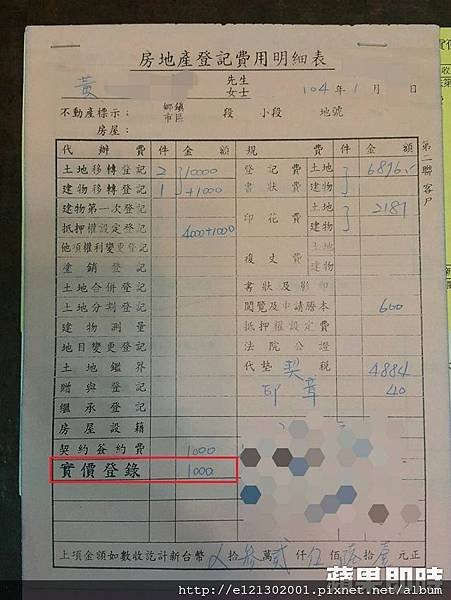 房地產登記費用明細表
黃 先生 女士 104年1月 日
不動產標示： 鄉鎮市區 段 小段 地號
房屋：
代辦費 件 金額 規費 件 金額
土地移轉登記 2 10000 登記費 土地 6896.5
建物移轉登記 1 +1000 書狀費 建物
建物第一次登記 印花費 土地 2187
抵押權設定登記 4000+1000 建物
他項權利變更登記 複丈費 土地
塗銷登記 建物
土地合併登記 書狀及影印
土地分割登記 閱覽及申請謄本 600
建物測量 抵押權設定費
地目變更登記 法院公證
土地鑑界 代墊契稅 4884
贈與登記 印章 40
繼承登記
房屋設籍
契約簽約費 1000
實價登錄 1000
上項金額如數收訖計新台幣 拾叁萬貳仟伍佰陸拾壹元正
第二聯客戶
蘋果即時
http://e121302001.pixnet.net/album